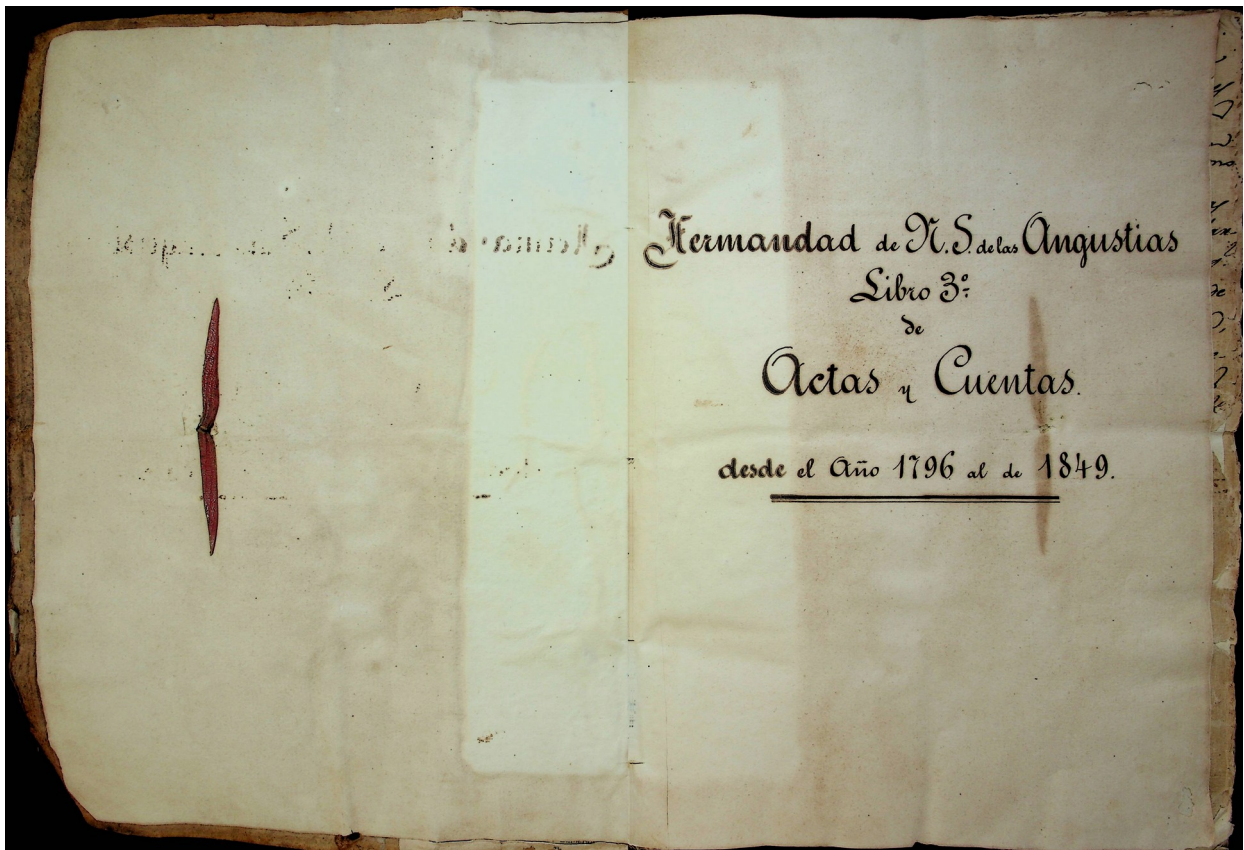 Hermandad de N. S. de las Angustias
Libro 3º
de
Actas y Cuentas.
desde el Año 1796 al de 1849.